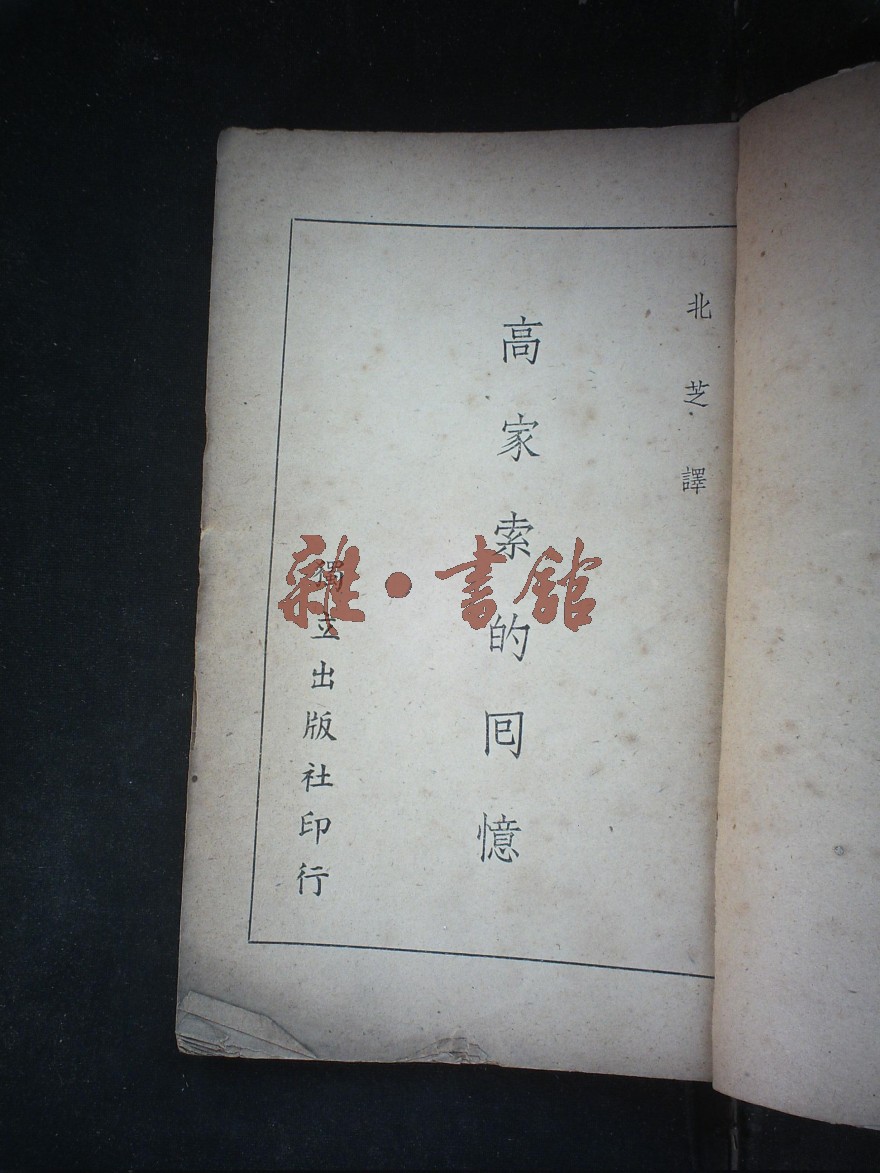 北芝譯
高家索的囘憶
獨立出版社印行
雜·書館